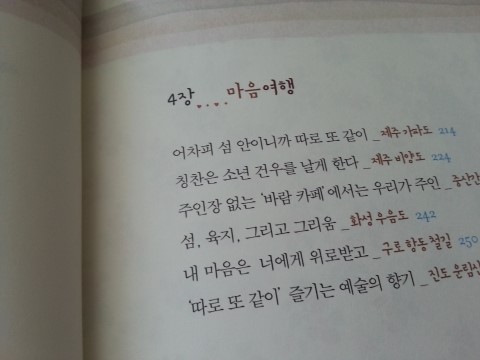 4장.....마음여행
어차피 섬 안이니까 따로 또 같이 _ 제주 가파도 214
칭찬은 소년 건우를 날게 한다 _ 제주 비양도 224
주인장 없는 '바람 카페'에서는 우리가 주인 _ 중산간
섬, 육지, 그리고 그리움 _ 화성 우음도 242
내 마음은 너에게 위로받고 _ 구로 항동 철길 250
'따로 또 같이' 즐기는 예술의 향기 _ 진도 운림산